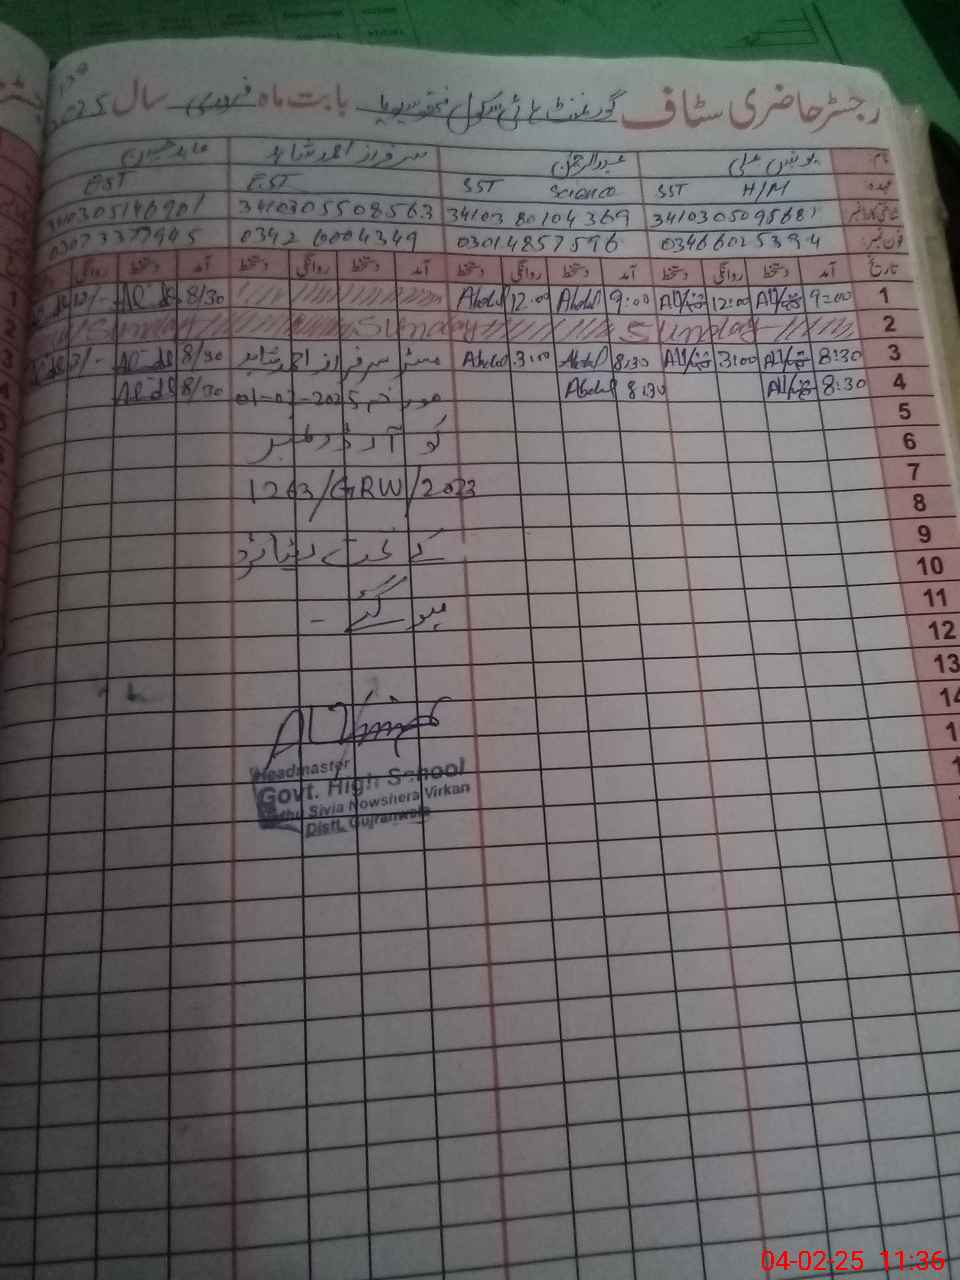 رجسٹر حاضری سٹاف گورنمنٹ ہائی سکول بابت ماہ فروری سال 2025
نام یونس علی عبدالرحمن سرفراز احمد شاہد عابد حسین
عہدہ SST H/M SST Science EST EST
3410305095681 3410380104369 3410305508563 3410305146901
فون نمبر 03466025394 03014857596 03426004349 03073377945
تاریخ آمد دستخط روانگی دستخط آمد دستخط روانگی دستخط آمد دستخط روانگی دستخط آمد دستخط روانگی
1 9:00 12:00 9:00 Abdul 12:00 Abdul 8/30
2 Sunday Sunday Sunday
3 8:30 3:00 8:30 Abdul 3:00 Abdul مسٹر سرفراز احمد شاہد 8/30
4 8:30 8:30 Abdul مورخہ 2025 8/30
5
6 کو آرڈر نمبر
7
8 1263/GRW/2023
9
10 کے تحت ریٹائرڈ
11
12 ہو گئے -
13
14
Headmaster
Govt. High School
Sivia Nowshera Virkan
Distt. Gujranwala
04-02-25 11:36